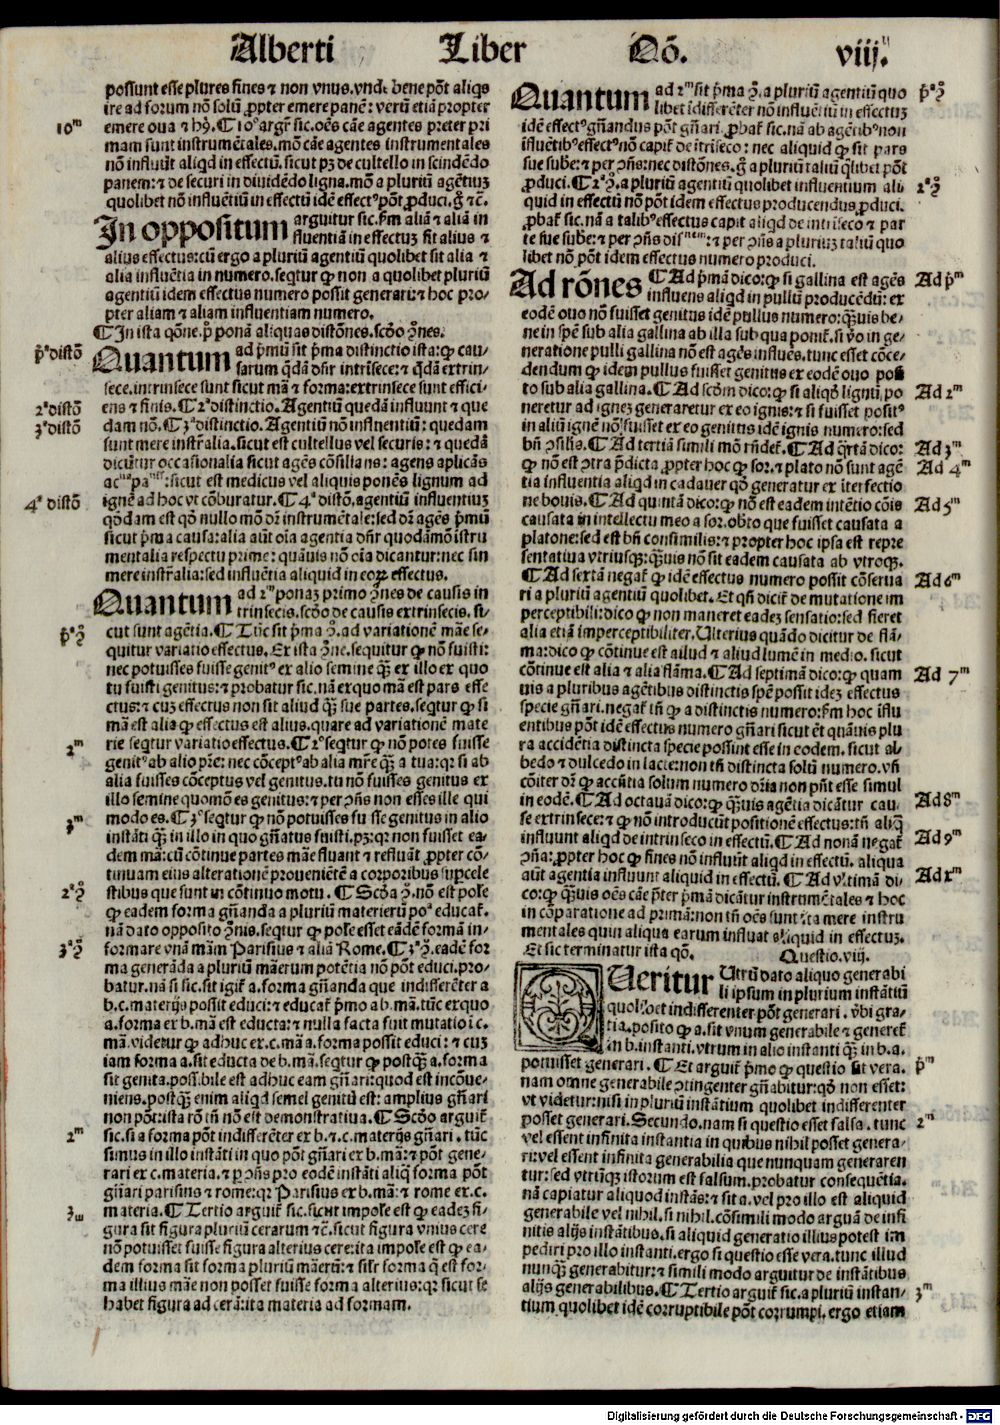 Alberti Liber Qō. viij.
possunt esse plures fines ⁊ non vnus. vndᵉ bene pōt aliqͥs
ire ad forum nō solū ꝓpter emere panē: verū etiā propter
10ᵐ
emere oua ⁊ hꝰ. ¶ 10º argr̄ sic. oēs cāe agentes preter pri
mam sunt instrumētales. mō cāe agentes instrumentales
nō influūt aliqd in effectū. sicut pꝫ de cultello in scindēdo
panem: ⁊ de securi in diuidēdo ligna. mō a pluriū agētiuꝫ
quolibet nō influētiū in effectū idē effectꝰ pōt ꝓduci. ḡ ⁊c̄.
In oppositum arguitur sic. pͥm aliā ⁊ aliā in
fluentiā in effectuꝫ fit alius ⁊
alius effectus: cū ergo a pluriū agentiū quolibet sit alia ⁊
alia influētia in numero. seqtur ꝙ non a quolibet pluriū
agentiū idem effectus numero possit generari: ⁊ hoc pro-
pter aliam ⁊ aliam influentiam numero.
¶ In ista qōne. pº ponā aliquas distōnes. scd̄o ꝯ̄nes.
pª distō
Quantum ad pͥmū sit pͥma distinctio ista: ꝙ cau-
sarum qd̄ā dn̄r intrīsece: ⁊ qd̄ā extrin-
sece. intrinsece sunt sicut mā ⁊ forma: extrinsece sunt effici-
2ª distō
ens ⁊ finis. ¶ 2ª distinctio. Agentiū quedā influunt ⁊ que
3ª distō
dam nō. ¶ 3ª distinctio. Agentiū nō influentiū: quedam
sunt mere instr̄alia. sicut est cultellus vel securis: ⁊ quedā
dicūtur occasionalia sicut agēs cōsilians: agens aplicās
acᵘᵃ paᵘⁱˢ: sicut est medicus vel aliquis ponēs lignum ad
4ª distō
ignē ad hoc vt cōburatur. ¶ 4ª distō. agentiū influentiuꝫ
qōdam est qō nullo mō dr̄ instrumētale: sed dr̄ agēs pͥmū
sicut pͥma causa: alia aūt oīa agentia dn̄r quodāmō īstru
mentalia respectu prime: quāuis nō oīa dicantur: nec sin
mere instr̄alia: sed influētia aliquid in eoꝝ effectus.
Quantum ad 2ᵐ ponaꝫ primo ꝯ̄nes de causis in
trinsecis. scd̄o de causis extrinsecis. si-
pª ꝯº
cut sunt agētia. ¶ Tūc sit pͥma ꝯº. ad variationē māe se-
quitur variatio effectus. Ex ista ꝯ̄ne. sequitur ꝙ nō fuisti:
nec potuisses fuisse genitꝰ ex alio semine qꝫ̄ ex illo ex quo
tu fuisti genitus: ⁊ probatur sic. nā ex quo mā est pars effe
ctus: ⁊ cuꝫ effectus non sit aliud qꝫ̄ sue partes. seqtur ꝙ si
mā est alia ꝙ effectus est alius. quare ad variationē mate
2ᵐ
rie seqtur variatio effectus. ¶ 2º seqtur ꝙ nō potes fuisse
genitꝰ ab alio pr̄e: nec cōceptꝰ ab alia mr̄e qꝫ̄ a tua: qr si ab
alia fuisses cōceptus vel genitus. tu nō fuisses genitus ex
illo semine quomō es genitus: ⁊ per ꝯn̄s non esses ille qui
3ᵐ
modo es. ¶ 3º seqtur ꝙ nō potuisses fuisse genitus in alio
instāti qꝫ̄ in illo in quo gn̄atus fuisti. pꝫ: qr non fuisset ea-
dem mā: cū cōtinue partes māe fluant ⁊ refluāt ꝓpter cō-
tinuam eius alterationē prouenietē a corporibus suꝑcele
2ª ꝯº
stibus que sunt in cōtinuo motu. ¶ Scd̄a ꝯº. nō est pol̄e
ꝙ eadem forma gn̄anda a pluriū materierū poª educat̄.
nā dato opposito ꝯ̄nis. seqtur ꝙ pol̄e esset eādē formā in-
3ª ꝯº
formare vnā mām Parisius ⁊ aliā Rome. ¶ 3ª ꝯº. eadē for
ma generāda a pluriū māerum potētia nō pōt educi. pro-
batur. nā si sic. sit igit̄ a. forma gn̄anda que indifferēter a
b. c. materijs possit educi: ⁊ educat̄ pͥmo ab b. mā. tūc ex quo
a. forma ex b. mā est educta: ⁊ nulla facta fuit mutatio ī c.
mā. videtur ꝙ adhuc ex. c. mā a. forma possit educi: ⁊ cuꝫ
iam forma a. sit educta de b. mā. seqtur ꝙ postqꝫ̄ a. forma
sit genita. possibile est adhuc eam gn̄ari: quod est incōue-
niens. postqꝫ̄ enim aliqd semel genitū est: amplius gn̄ari
non pōt: ista rō tn̄ nō est demonstratiua. ¶ Scd̄o arguit̄
2ᵐ
sic. si a forma pōt indifferēter ex b. ⁊. c. materijs gn̄ari. tūc
simus in illo instāti in quo pōt gn̄ari ex b. mā: ⁊ pōt gene-
rari ex c. materia. ⁊ ꝑ ꝯn̄s pro eodē instāti aliq̄ forma pōt
gn̄ari parisius ⁊ rome: qr Parisius ex b. mā: ⁊ rome ex. c.
3ᵐ
materia. ¶ Tertio arguit̄ sic. sicut impol̄e est ꝙ eadeꝫ fi-
gura sit figura pluriū cerarum ⁊c̄. sicut figura vnius cere
nō potuisset fuisse figura alterius cere: ita impol̄e est ꝙ ea-
dem forma sit forma pluriū māerū: ⁊ sil̄r forma q̄ est for-
ma illius māe non posset fuisse forma alterius: qr sicut se
habet figura ad cerā: ita materia ad formam.
Quantum ad 2ᵐ sit pͥma ꝯº. a pluriū agentiū quo
pª ꝯº
libet īdifferēter nō influētiū in effectuꝫ
idē effectꝰ gn̄andus pōt gn̄ari. ꝓbat̄ sic. nā ab agētibꝰ non
influētibꝰ effectꝰ nō capit̄ de ītriseco: nec aliquid ꝙ sit pars
sue sube: ⁊ per ꝯn̄s: nec distōnes. ḡ a pluriū taliū qͥlibet pōt
2ª ꝯº
ꝓduci. ¶ 2ª ꝯº. a pluriū agentiū quolibet influentium ali
quid in effectū nō pōt idem effectus producendus ꝓduci.
ꝓbat̄ sic. nā a talibꝰ effectus capit aliqd de intriseco ⁊ par
te sue sube: ⁊ per ꝯn̄s disⁿᵉᵐ: ⁊ per ꝯn̄s a pluriuꝫ taliū quo
libet nō pōt idem effectus numero produci.
Ad rōnes ¶ Ad pͥmā dico: ꝙ si gallina est agēs
Ad pͫ
influens aliqd in pullū producēdū: ex
eodē ouo nō fuisset genitus idē pullus numero: qꝫ̄uis be-
ne in spē sub alia gallina ab illa sub qua ponit̄. si v̄o in ge-
neratione pulli gallina nō est agēs influēs. tunc esset cōce-
dendum ꝙ idem pullus fuisset genitus ex eodē ouo posi
to sub alia gallina. ¶ Ad scd̄m dico: ꝙ si aliqō lignū. po
Ad 2ᵐ
neretur ad ignez generaretur ex eo ignis: ⁊ si fuisset positꝰ
in aliū ignē nō fuisset ex eo genitus idē ignis numero: sed
bn̄ ꝯsilis. ¶ Ad tertiā simili mō rn̄det̄. ¶ Ad qͣrtā dico:
Ad 3ᵐ
ꝙ nō est ꝯtra p̄dicta ꝓpter hoc ꝙ sor. ⁊ plato nō sunt agē
Ad 4ᵐ
tia influentia aliqd in cadauer qō generatur ex īterfectio
ne bouis. ¶ Ad quintā dico: ꝙ nō est eadem intētio cōis
Ad 5ᵐ
causata in intellectu meo a sor. ob tō que fuisset causata a
platone: sed est bn̄ consimilis: ⁊ propter hoc ipsa est repre
sentatiua vtriusqꝫ: qꝫ̄uis nō sit eadem causata ab vtroqꝫ.
¶ Ad sextā negat̄ ꝙ idē effectus numero possit cōserua
Ad 6ᵐ
ri a pluriū agentiū quolibet. Et qn̄ dicit̄ de mutatione im
perceptibili: dico ꝙ non maneret eadeꝫ sensatio: sed fieret
alia etiā imperceptibiliter. Vlterius quādo dicitur de flā-
ma: dico ꝙ cōtinue est aliud ⁊ aliud lumē in medio. sicut
cōtinue est alia ⁊ alia flāma. ¶ Ad septimā dico: ꝙ quam
Ad 7ᵐ
uis a pluribus agētibus distinctis spē possit ideꝫ effectus
specie gn̄ari. negat̄ tn̄ ꝙ a distinctis numero: pͥm hoc īflu
entibus pōt idē effectus numero gn̄ari sicut ēt quāuis plu
ra accidētia distincta specie possint esse in eodem. sicut al-
bedo ⁊ dulcedo in lacte: non tn̄ distincta solū numero. vn̄
cōiter dr̄ ꝙ accn̄tia solum numero dr̄ia non pn̄t esse simul
in eodē. ¶ Ad octauā dico: ꝙ qꝫ̄uis agētia dicātur cau-
Ad 8ᵐ
se extrinsece: ⁊ ꝙ nō introducūt positionē effectus: tn̄ aliq̄
influunt aliqd de intrinseco in effectū. ¶ Ad nonā negat̄
Ad 9ᵐ
ꝯn̄a: ꝓpter hoc ꝙ fines nō influūt aliqd in effectū. aliqua
aūt agentia influunt aliquid in effectū. ¶ Ad vltimā di-
Ad xᵐ
co: ꝙ qꝫ̄uis oēs cāe p̄ter pͥmā dicātur instrumētales ⁊ hoc
in cōparatione ad primā: non tn̄ oēs sunt ita mere instru
mentales quin aliqua earum influat aliquid in effectuꝫ.
Et sic terminatur ista qō. Questio. viij.
Queritur Vtrū dato aliquo generabi
li ipsum in plurium instātiū
quolibet indifferenter pōt generari. v̄bi gra-
tia. posito ꝙ a. sit vnum generabile ⁊ generet̄
in b. instanti. vtrum in alio instanti qꝫ̄ in b. a.
potuisset generari. ¶ Et arguit̄ pͥmo ꝙ questio sit vera.
pᵐ
nam omne generabile ꝯtingenter gn̄abitur: qō non esset:
vt videtur: nisi in pluriū instātium quolibet indifferenter
posset generari. Secundo. nam si questio esset falsa. tunc
2ᵐ
vel essent infinita instantia in quibus nihil posset genera-
ri: vel essent infinita generabilia que nunquam generaren
tur: sed vtrūqꝫ istorum est falsum. probatur consequētia.
nā capiatur aliquod instās: ⁊ sit a. vel pro illo est aliquid
generabile vel nihil. si nihil. cōsimili modo arguā de infi
nitis alijs instātibus. si aliquid generatio illius potest im
pediri pro illo instanti. ergo si questio esse vera. tunc illud
nunqꝫ̄ generabitur: ⁊ simili modo arguitur de instātibus
alijs generabilibus. ¶ Tertio arguit̄ sic. a pluriū instan-
3ᵐ
tium quolibet idē corruptibile pōt corrumpi. ergo etiam
Digitalisierung gefördert durch die Deutsche Forschungsgemeinschaft - DFG